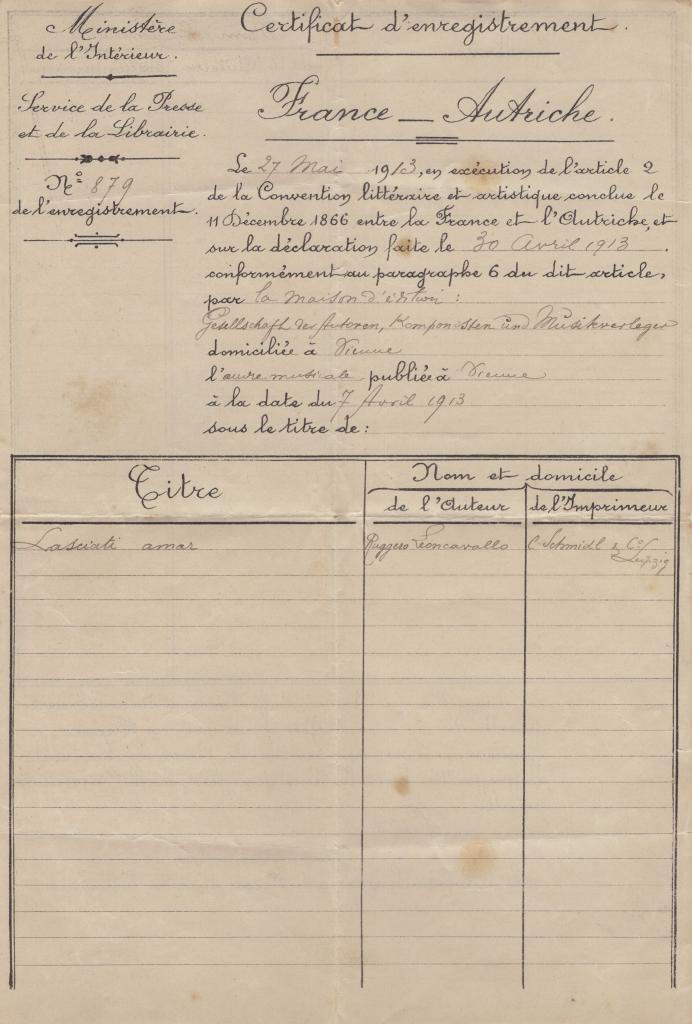 Ministère
de l'Intérieur.
Service de la Presse
et de la Librairie.
N° 879
de l'enregistrement.
Certificat d'enregistrement.
France — Autriche.
Le 27 Mai 1913, en exécution de l'article 2
de la Convention littéraire et artistique conclue le
11 Décembre 1866 entre la France et l'Autriche, et
sur la déclaration faite le 30 Avril 1913.
conformément au paragraphe 6 du dit article,
par la maison d'édition :
Gesellschaft der Autoren, Komponisten und Musikverleger
domiciliée à Vienne
l'œuvre musicale publiée à Vienne
à la date du 7 Avril 1913
sous le titre de :
Titre
Nom et domicile
de l'Auteur
de l'Imprimeur
Lasciati amar
Ruggero Leoncavallo
C. Schmidl & Co/
Leipzig